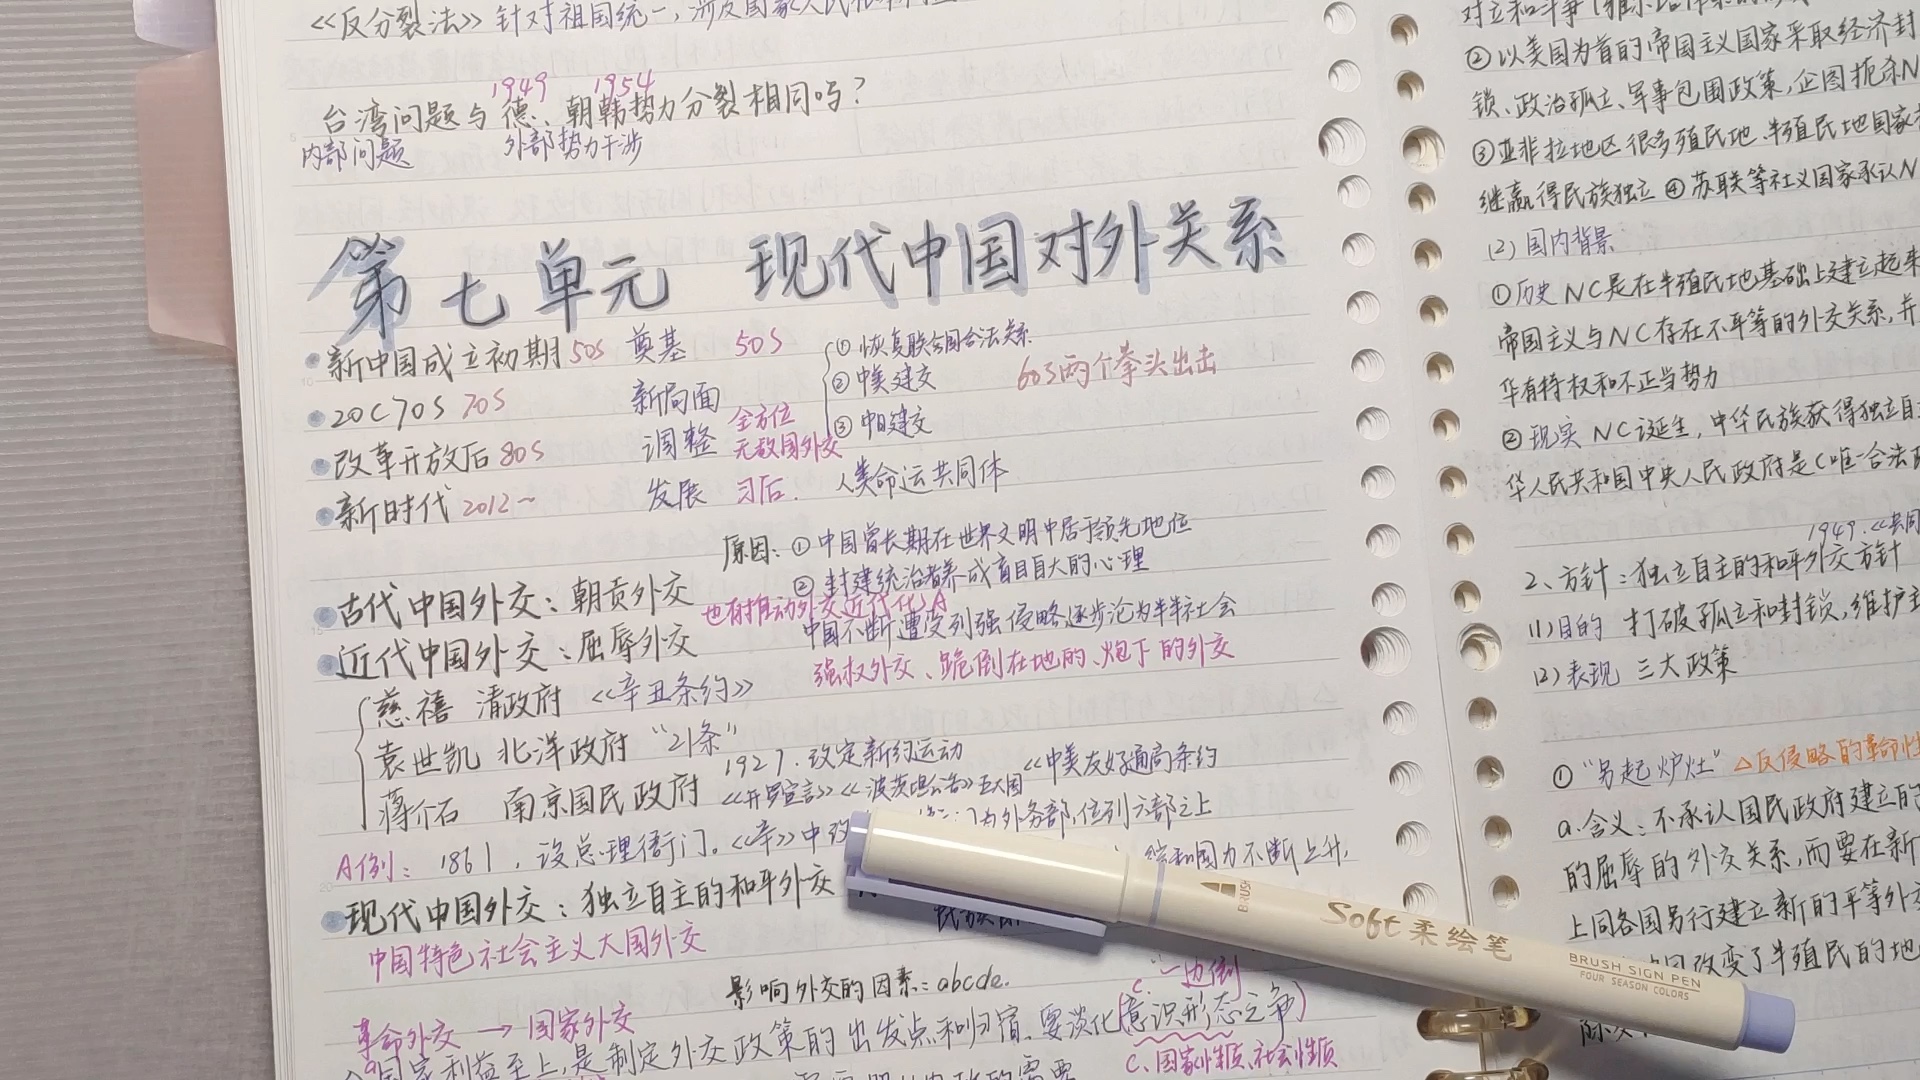 《反分裂法》针对祖国统一，涉及国家人民
1949 1954
台湾问题与德、朝韩势力分裂相同吗？
内部问题 外部势力干涉
第七单元 现代中国对外关系
新中国成立初期 50S 奠基 50S ①恢复联合国合法关系
20C70S 70S 新局面 ②中美建交 60S两个拳头出击
全方位 ③中日建交
改革开放后 80S 调整 无敌国外交
新时代 2012~ 发展 习后. 人类命运共同体
原因：①中国曾长期在世界文明中居于领先地位
②封建统治者养成盲目自大的心理
古代中国外交：朝贡外交
也有推动外交近代化A
中国不断遭受列强侵略逐步沦为半半社会
近代中国外交：屈辱外交
强权外交、跪倒在地的、炮下的外交
慈禧 清政府 《辛丑条约》
袁世凯 北洋政府 “21条”
1927.改定新约运动 《中美友好通商条约
蒋介石 南京国民政府 《开罗宣言》《波茨坦公告》五大国
A例：1861，设总理衙门。《辛》中改 为外务部,位列六部之上
综和国力不断上升,
现代中国外交：独立自主的和平外交
中国特色社会主义大国外交
影响外交的因素：abcde.
C.“一边倒
革命外交→国家外交
国家利益至上,是制定外交政策的出发点和归宿.要淡化(意识形态之争)
C.国家性质、社会性质
Soft柔绘笔
BRUSH SIGN PEN
FOUR SEASON COLORS
BRUSH
对立和斗争
②以美国为首的帝国主义国家采取经济封
锁、政治孤立、军事包围政策,企图扼杀N
③亚非拉地区很多殖民地、半殖民地国家
继赢得民族独立④苏联等社义国家承认N
(2)国内背景
①历史 NC是在半殖民地基础上建立起来
帝国主义与NC存在不平等的外交关系,并
华有特权和不正当势力
②现实 NC诞生,中华民族获得独立自
华人民共和国中央人民政府是C唯一合法政
1949.《共同
2、方针：独立自主的和平外交方针
(1)目的 打破孤立和封锁,维护
(2)表现 三大政策
①“另起炉灶” △反侵略的革命性
a.含义：不承认国民政府建立的
的屈辱的外交关系,而要在新
上同各国另行建立新的平等外交
改变了半殖民的地